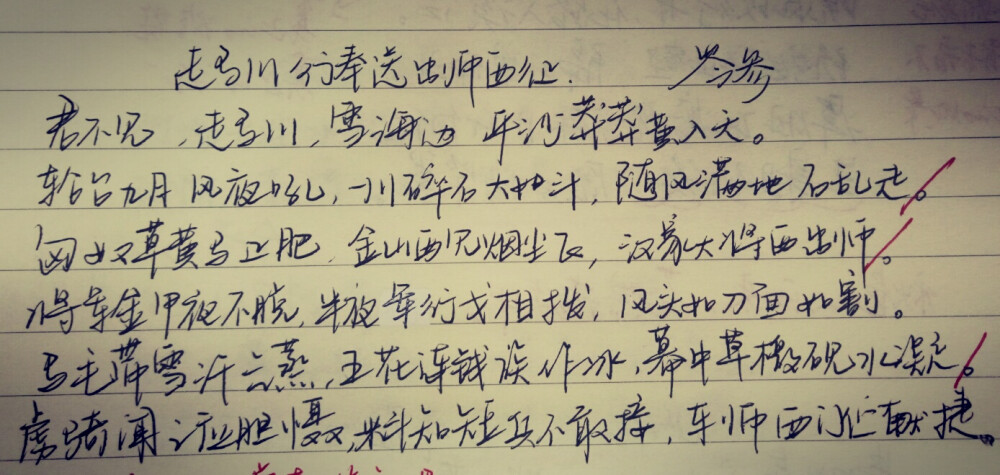 走马川行奉送出师西征. 岑参
君不见,走马川,雪海边 平沙莽莽黄入天。
轮台九月风夜吼,一川碎石大如斗,随风满地石乱走。
匈奴草黄马正肥,金山西见烟尘飞,汉家大将西出师。
将军金甲夜不脱,半夜军行戈相拨,风头如刀面如割。
马毛带雪汗气蒸,五花连钱旋作冰,幕中草檄砚水凝。
虏骑闻之应胆慑,料知短兵不敢接,车师西门伫献捷。